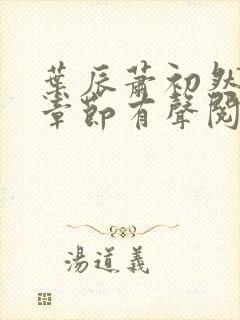 葉辰蕭初然
章節有聲閱
湯道義